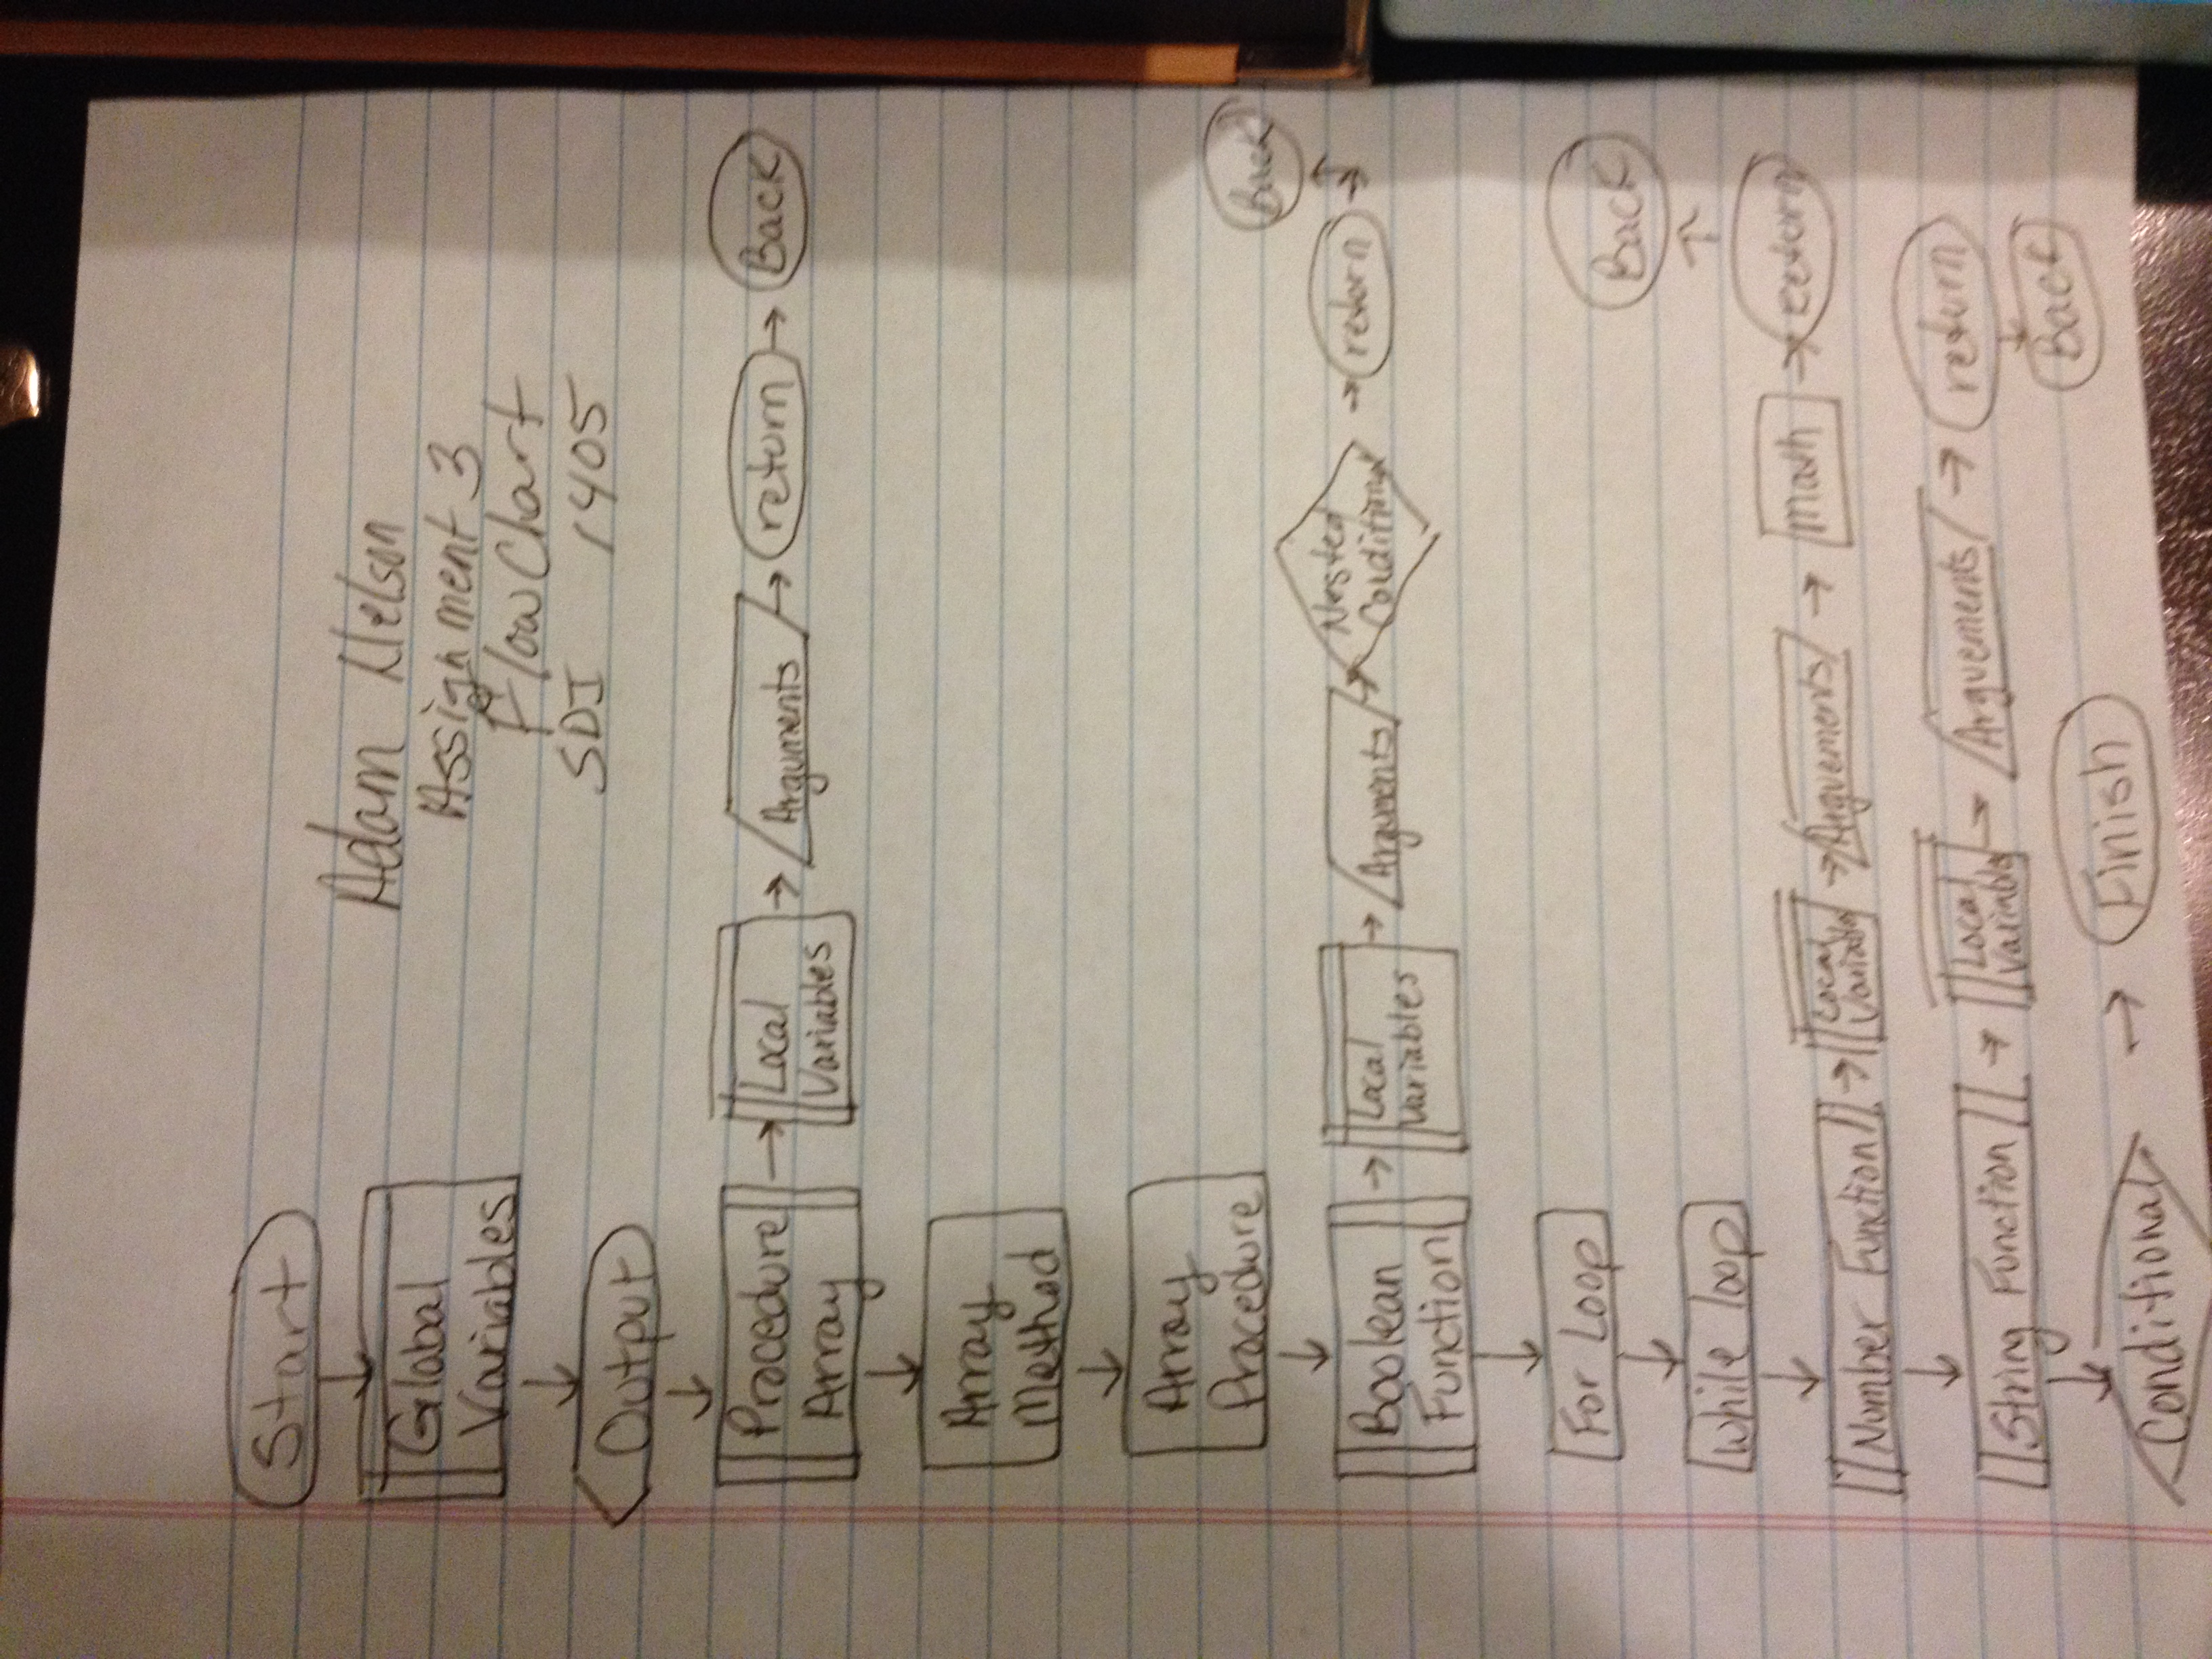 Start
Adam Nelson
Global
Variables
Assignment 3
Flow Chart
SDI 1405
Output
Procedure
Array
Local
Variables
Arguments
return
Back
Array
Method
Array
Procedure
Back
Boolean
Function
Local
Variables
Arguments
Nested
Conditional
return
For Loop
While loop
Back
Number Function
Local
Variable
Arguements
math
return
String Function
Local
Variable
Arguements
return
Back
Conditional
Finish